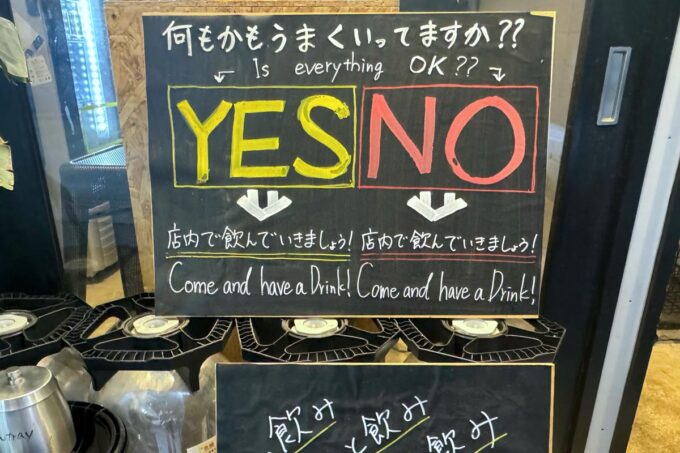 何もかもうまくいってますか??
Is everything OK??
YES NO
店内で飲んでいきましょう! 店内で飲んでいきましょう!
Come and have a Drink! Come and have a Drink!
飲み
と飲み
飲み